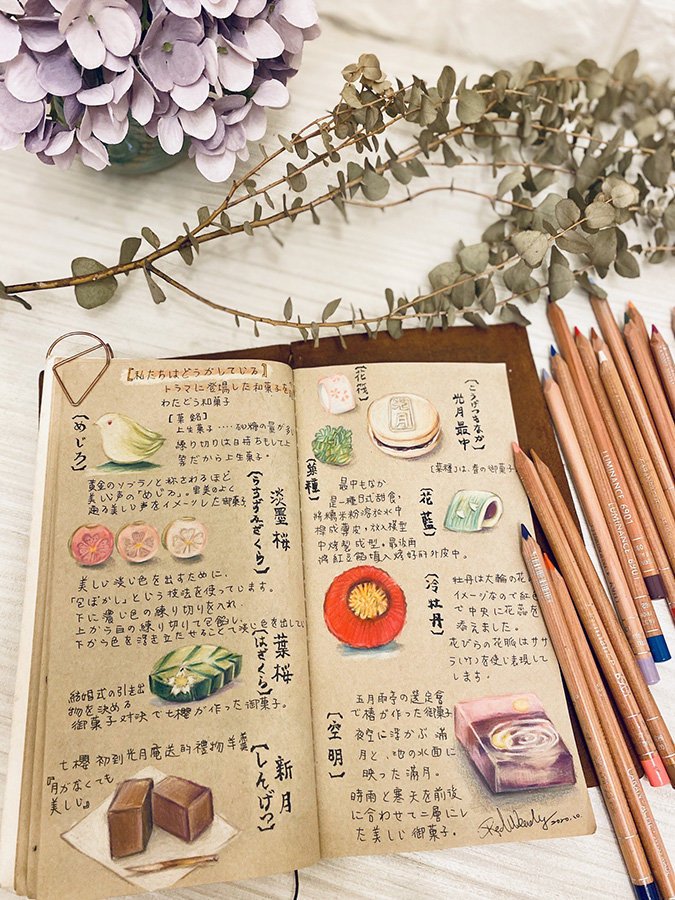 【私たちはどうかしている】
ドラマに登場した和菓子を
わたどう和菓子
【めじろ】
【菓銘】
上生菓子‥‥砂糖の量が多
練り切りは日持ちもして上
等だから上生菓子。
黄金のソプラノと称されるほど
美しい声の「めじろ」。
美しい声をイメージした御菓子
淡墨桜
【うすずみざくら】
美しい淡い色を出すために、
「包ぼかし」という技法を使っています。
下に濃い色の練り切りを入れ、
上から白の練り切りで包餡し、
下から色を浮き立たせることで淡い色を出して
葉桜
【はざくら】
結婚式の引き出
物を決める
御菓子対決で七桜が作った御菓子。
七櫻初到光月庵送的禮物羊羹
『月がなくても
美しい』
新月
【しんげつ】
【花筏】
【こうげつもなか】
光月最中
【菜種】
【菜種】は、春の御菓子
最中もなか
是一種日式甜食,
將糯米粉溶於水中
桿成薄皮,放入模型
中烤製成型。最後再
將紅豆餡填入烤好的外皮中。
【花籃】
【冷牡丹】
牡丹は大輪の花の
イメージなので紅色
で中央に花蕊を
添えました。
花びらの花脈はササ
ラ(竹)を使い表現して
します。
【空明】
五月雨亭の選定會
で椿が作った御菓子
夜空に浮かぶ滿
月と、池の水面に
映った滿月。
時雨と寒天を前後
に合わせて二層にし
た美しい御菓子。
Red Wendy 2020.10.
LUMINANCE 6901
LUMINANCE 6901